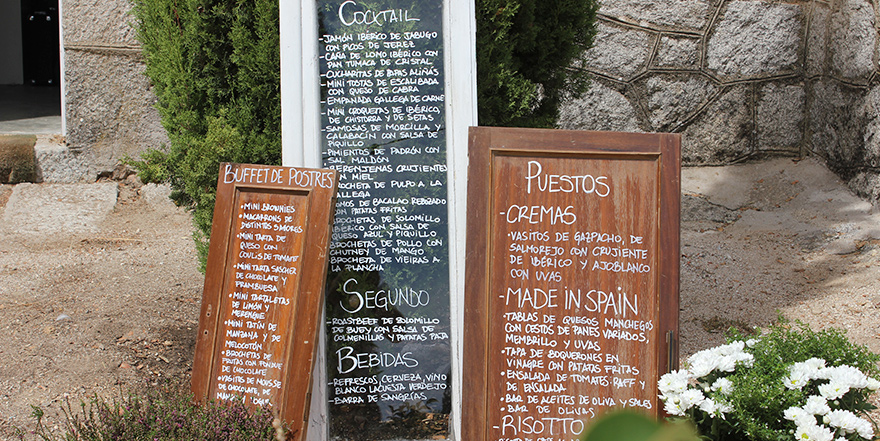 BUFFET DE POSTRES
• MINI BROWNIES
• MACARONS DE
DISTINTOS SABORES
• MINI TARTA DE
QUESO CON
COULIS DE TOMATE
• MINI TARTA SACHER
DE CHOCOLATE Y
FRAMBUESA
• MINI TARTALETAS
DE LIMÓN Y
MERENGUE
• MINI TATÍN DE
MANZANA Y DE
MELOCOTÓN
• BROCHETAS DE
FRUTAS CON FONDUE
DE CHOCOLATE
• VASITOS DE MOUSSE
DE CHOCOLATE, DE
MANGO Y DE YOGUR
COCKTAIL
- JAMÓN IBÉRICO DE JABUGO
CON PICOS DE JEREZ
- CAÑA DE LOMO IBÉRICO CON
PAN TUMACA DE CRISTAL
- CUCHARITAS DE PAPAS ALIÑÁS
- MINI TOSTAS DE ESCALIBADA
CON QUESO DE CABRA
- EMPANADA GALLEGA DE CARNE
- MINI CROQUETAS DE IBÉRICO,
DE CHISTORRA Y DE SETAS
- SAMOSAS DE MORCILLA Y
CALABACÍN CON SALSA DE
PIQUILLO
- PIMIENTOS DE PADRÓN CON
SAL MALDÓN
BERENJENAS CRUJIENTES
CON MIEL
BROCHETA DE PULPO A LA
GALLEGA
LOMOS DE BACALAO REBOZADO
CON PATATAS FRITAS
BROCHETAS DE SOLOMILLO
IBÉRICO CON SALSA DE
QUESO AZUL Y PIQUILLO
BROCHETAS DE POLLO CON
CHUTNEY DE MANGO
BROCHETA DE VIEIRAS A
LA PLANCHA
SEGUNDO
- ROASTBEEF DE SOLOMILLO
DE BUEY CON SALSA DE
COLMENILLAS Y PATATAS PAJA
BEBIDAS
- REFRESCOS, CERVEZA, VINO
BLANCO LACUESTA VERDEJO
- BARRA DE SANGRÍAS
PUESTOS
- CREMAS
• VASITOS DE GAZPACHO, DE
SALMOREJO CON CRUJIENTE
DE IBÉRICO Y AJOBLANCO
CON UVAS
- MADE IN SPAIN
• TABLAS DE QUESOS MANCHEGOS
CON CESTOS DE PANES VARIADOS,
MEMBRILLO Y UVAS
• TAPA DE BOQUERONES EN
VINAGRE CON PATATAS FRITAS
• ENSALADA DE TOMATES RAFF Y
DE ENSALADA
• BAR DE ACEITES DE OLIVA Y SALES
• BAR DE OLIVAS
- RISOTTO